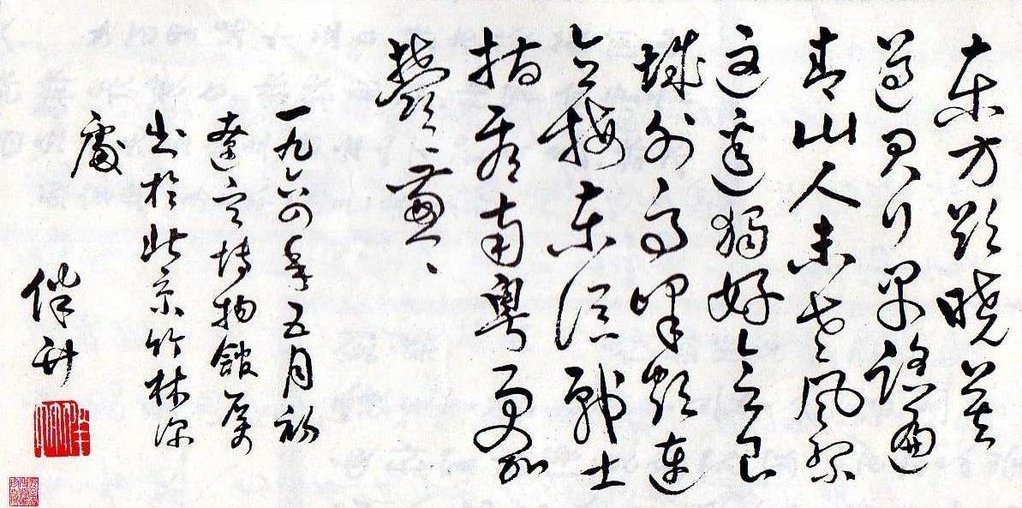 东方欲晓莫
道君行早踏遍
青山人未老风景
这边独好会昌
城外高峰颠连
直接东溟战士
指看南粤更加
郁郁葱葱
一九六四年五月初
博物館属
书於北京竹林深
處